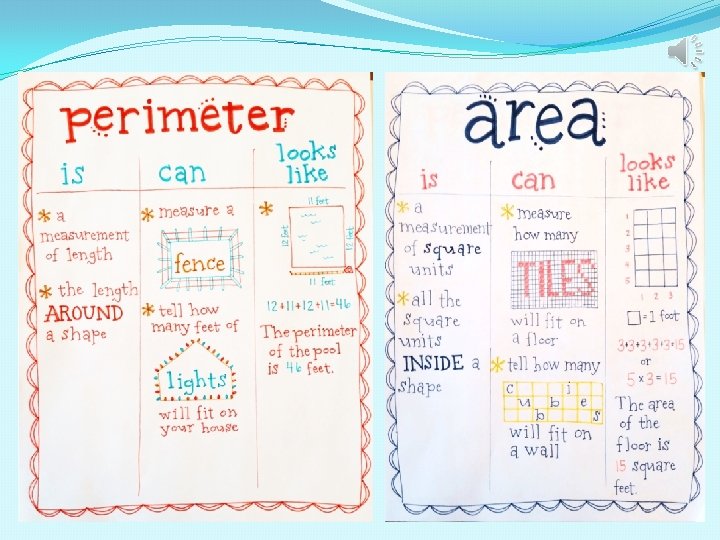 perimeter
is
can
looks
like
* a
measurement
of length
* the length
AROUND
a shape
* measure a
fence
* tell how
many feet of
lights
will fit on
your house
*
11 feet
12 feet
12 feet
11 feet
12+11+12+11=46
The perimeter
of the pool
is 46 feet.
area
is
can
looks
like
* a
measurement
of square
units
* all the
square
units
INSIDE a
shape
* measure
how many
TILES
will fit on
a floor
* tell how many
c u b b i e s
will fit on
a wall
1
2
3
4
5
1 2 3
=1 foot
3+3+3+3+3=15
or
5x3=15
The area
of the
floor is
15 square
feet.